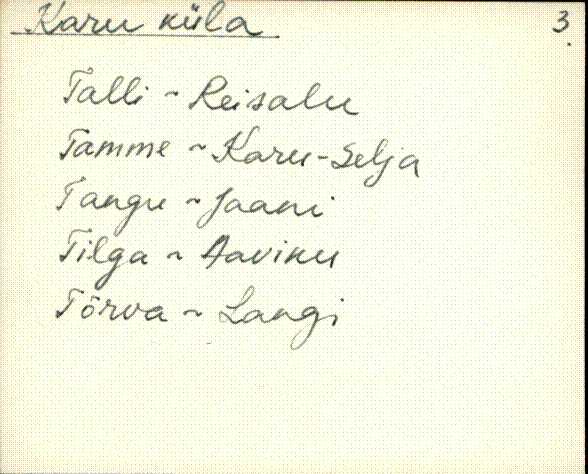 Karu küla 3.
Talli ~ Reisalu
Tamme ~ Karu-Selja
Tangu ~ Jaani
Tilga ~ Aaviku
Tõrva ~ Langi